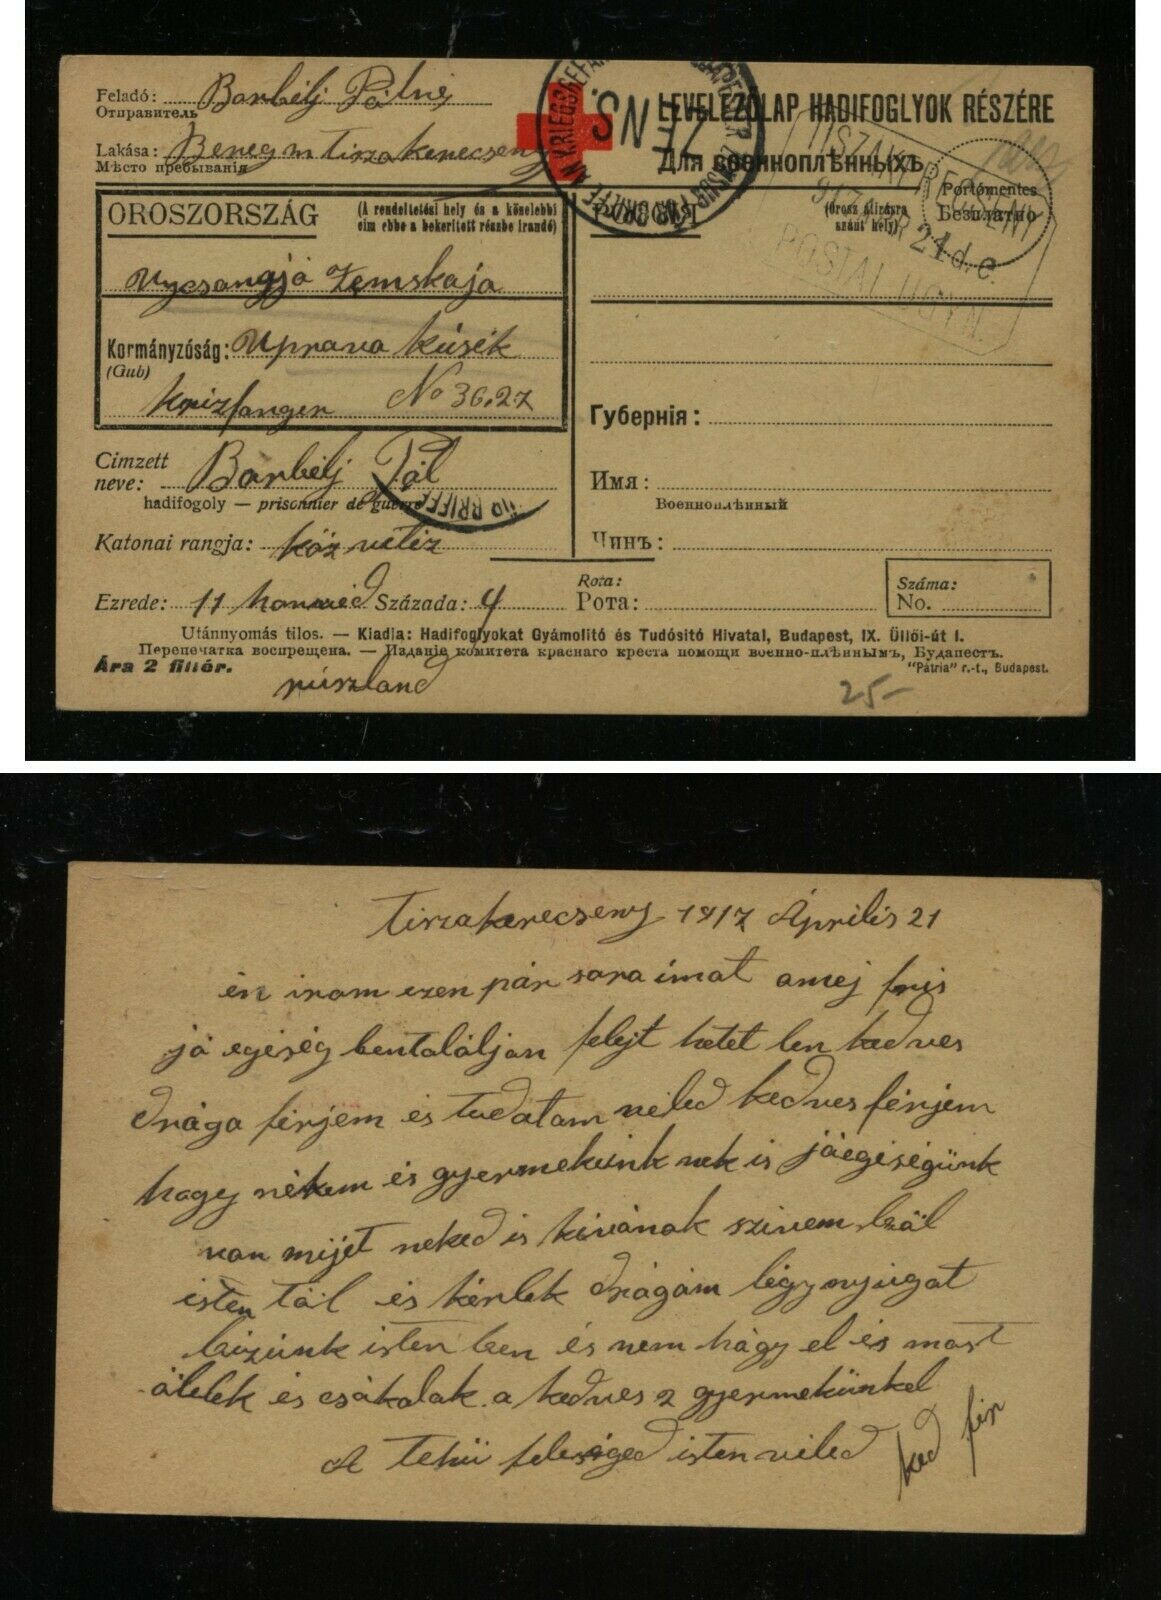 Feladó: Borbélj Pálné
Отправитель
LEVELEZŐLAP HADIFOGLYOK RÉSZÉRE
Lakása: Bereg m tiszakerecseny
Мѣсто пребыванія
Для военноплѣнныхъ
ZENS.
TISZAKERECSENY
917 ÁPR 21 d.e.
POSTAI ÜGYN.
Portómentes
Безплатно
OROSZORSZÁG
(A rendeltetési hely és a közelebbi
cim ebbe a bekeritett részbe irandó)
(Orosz átirásra
szánt hely)
Zemskaja
Kormányzóság: Uprava
(Gub)
No 36.27
Губернія:
Czimzett
neve: Borbélj Pál
hadifogoly — prisonnier de guerre
Имя:
Военноплѣнный
Katonai rangja: köz vitéz
Чинъ:
Ezrede: 11 honvéd Százada: 4
Rota:
Рота:
Száma:
No.
Utánnyomás tilos. — Kiadja: Hadifoglyokat Gyámolitó és Tudósitó Hivatal, Budapest, IX. Üllői-út 1.
Перепечатка воспрещена. — Изданіе комитета краснаго креста помощи военно-плѣннымъ, Будапестъ.
Ára 2 fillér.
"Pátria" r.-t., Budapest.
rúszland
25-
tiszakerecseny 1917 Április 21
én irom ezen pár sora imat amej fris
jó egéség bentaláljon felejt hetet len kedves
drága férjem és tudatom véled kedves férjem
hogy nékem és gyermekünk nek is jóegéségünk
van mijet neked is kivánok szivem ből
isten től és kérlek drágám légy nyugot
bizünk isten ben és nem hágy el és most
ölelek és csókolak a kedves 2 gyermekünkel
A tehü feleséged isten véled
ked fér